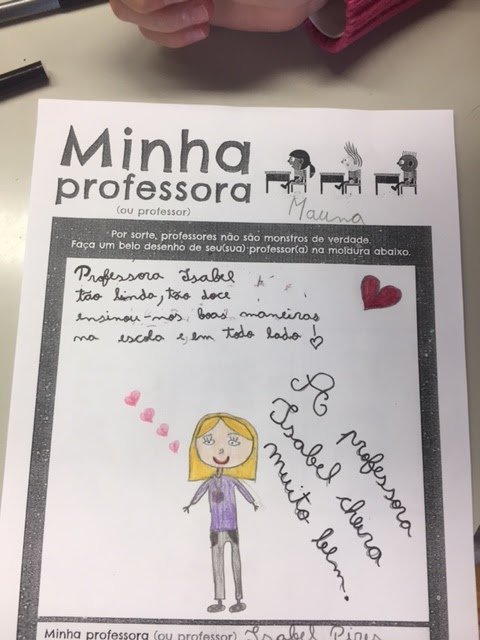 Minha
professora
(ou professor)
Mauna
Por sorte, professores não são monstros de verdade.
Faça um belo desenho de seu(sua) professor(a) na moldura abaixo.
Professora Isabel
tão linda, tão doce
ensinou-nos boas maneiras
na escola e em todo lado!
A professora
Isabel cheira
muito bem.
Minha professora (ou professor) Isabel Pires